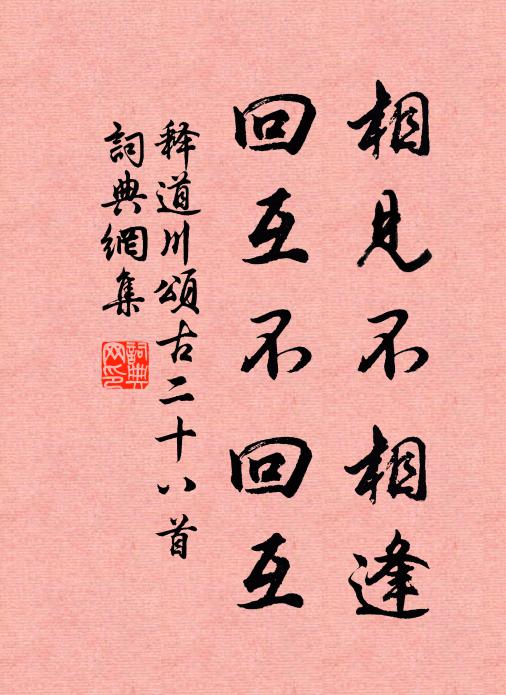 相見不相逢
回互不回互
释道川頌古二十八首
詞典網集
詞典網印